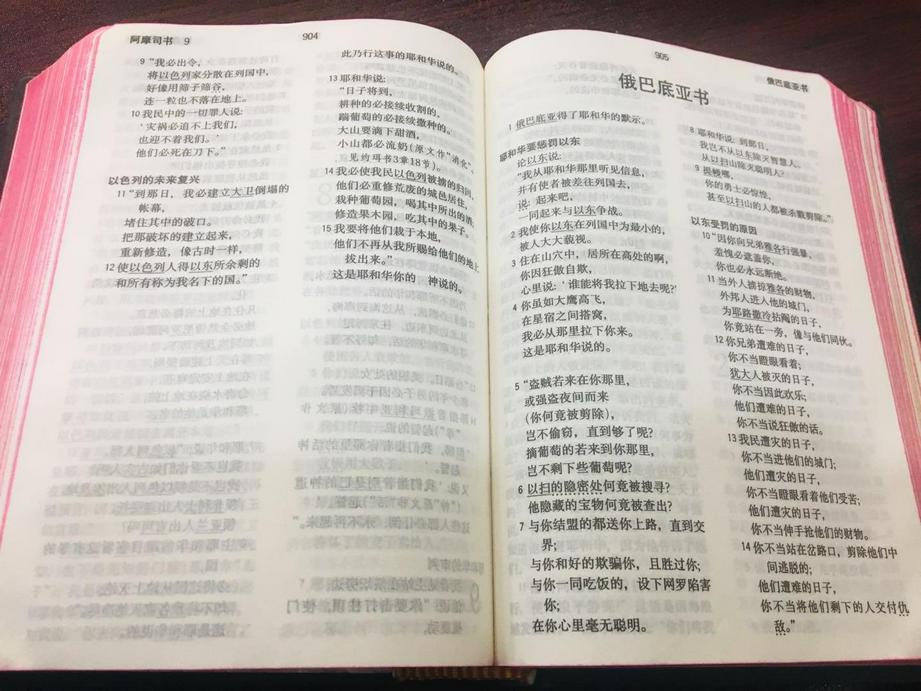 阿摩司书 9
904
9 “我必出令,
将以色列家分散在列国中,
好像用筛子筛谷,
连一粒也不落在地上。
10 我民中的一切罪人说:
‘灾祸必追不上我们,
也迎不着我们。’
他们必死在刀下。”
以色列的未来复兴
11 “到那日, 我必建立大卫倒塌的
帐幕,
堵住其中的破口。
把那破坏的建立起来,
重新修造, 像古时一样,
12 使以色列人得以东所余剩的
和所有称为我名下的国。”
此乃行这事的耶和华说的。
13 耶和华说:
“日子将到,
耕种的必接续收割的,
踹葡萄的必接续撒种的。
大山要滴下甜酒,
小山都必流奶(原文作“消化”,
见约珥书3章18节)。
14 我必使我民以色列被掳的归回,
他们必重修荒废的城邑居住,
栽种葡萄园, 喝其中所出的酒,
修造果木园, 吃其中的果子。
15 我要将他们栽于本地,
他们不再从我所赐给他们的地上
拔出来。”
这是耶和华你的 神说的。
905
俄巴底亚书
俄巴底亚书
1 俄巴底亚得了耶和华的默示。
耶和华要惩罚以东
论以东说:
“我从耶和华那里听见信息,
并有使者被差往列国去,
说: 起来吧,
一同起来与以东争战。
2 我使你以东在列国中为最小的,
被人大大藐视。
3 住在山穴中, 居所在高处的啊,
你因狂傲自欺,
心里说: ‘谁能将我拉下地去呢?’
4 你虽如大鹰高飞,
在星宿之间搭窝,
我必从那里拉下你来。
这是耶和华说的。
5 “盗贼若来在你那里,
或强盗夜间而来
(你何竟被剪除),
岂不偷窃, 直到够了呢?
摘葡萄的若来到你那里,
岂不剩下些葡萄呢?
6 以扫的隐密处何竟被搜寻?
他隐藏的宝物何竟被查出?
7 与你结盟的都送你上路, 直到交
界;
与你和好的欺骗你, 且胜过你;
与你一同吃饭的, 设下网罗陷害
你;
在你心里毫无聪明。
8 耶和华说: 到那日,
我岂不从以东除灭智慧人,
从以扫山除灭聪明人?
9 提幔哪,
你的勇士必惊惶,
甚至以扫山的人都被杀戮剪除。”
以东受罚的原因
10 “因你向兄弟雅各行强暴,
羞愧必遮盖你,
你也必永远断绝。
11 当外人掳掠雅各的财物,
外邦人进入他的城门,
为耶路撒冷拈阄的日子,
你竟站在一旁, 像与他们同伙。
12 你兄弟遭难的日子,
你不当瞪眼看着;
犹大人被灭的日子,
你不当因此欢乐;
他们遭难的日子,
你不当说狂傲的话。
13 我民遭灾的日子,
你不当进他们的城门;
他们遭灾的日子,
你不当瞪眼看着他们受苦;
他们遭灾的日子,
你不当伸手抢他们的财物。
14 你不当站在岔路口, 剪除他们中
间逃脱的;
他们遭难的日子,
你不当将他们剩下的人交付仇
敌。”